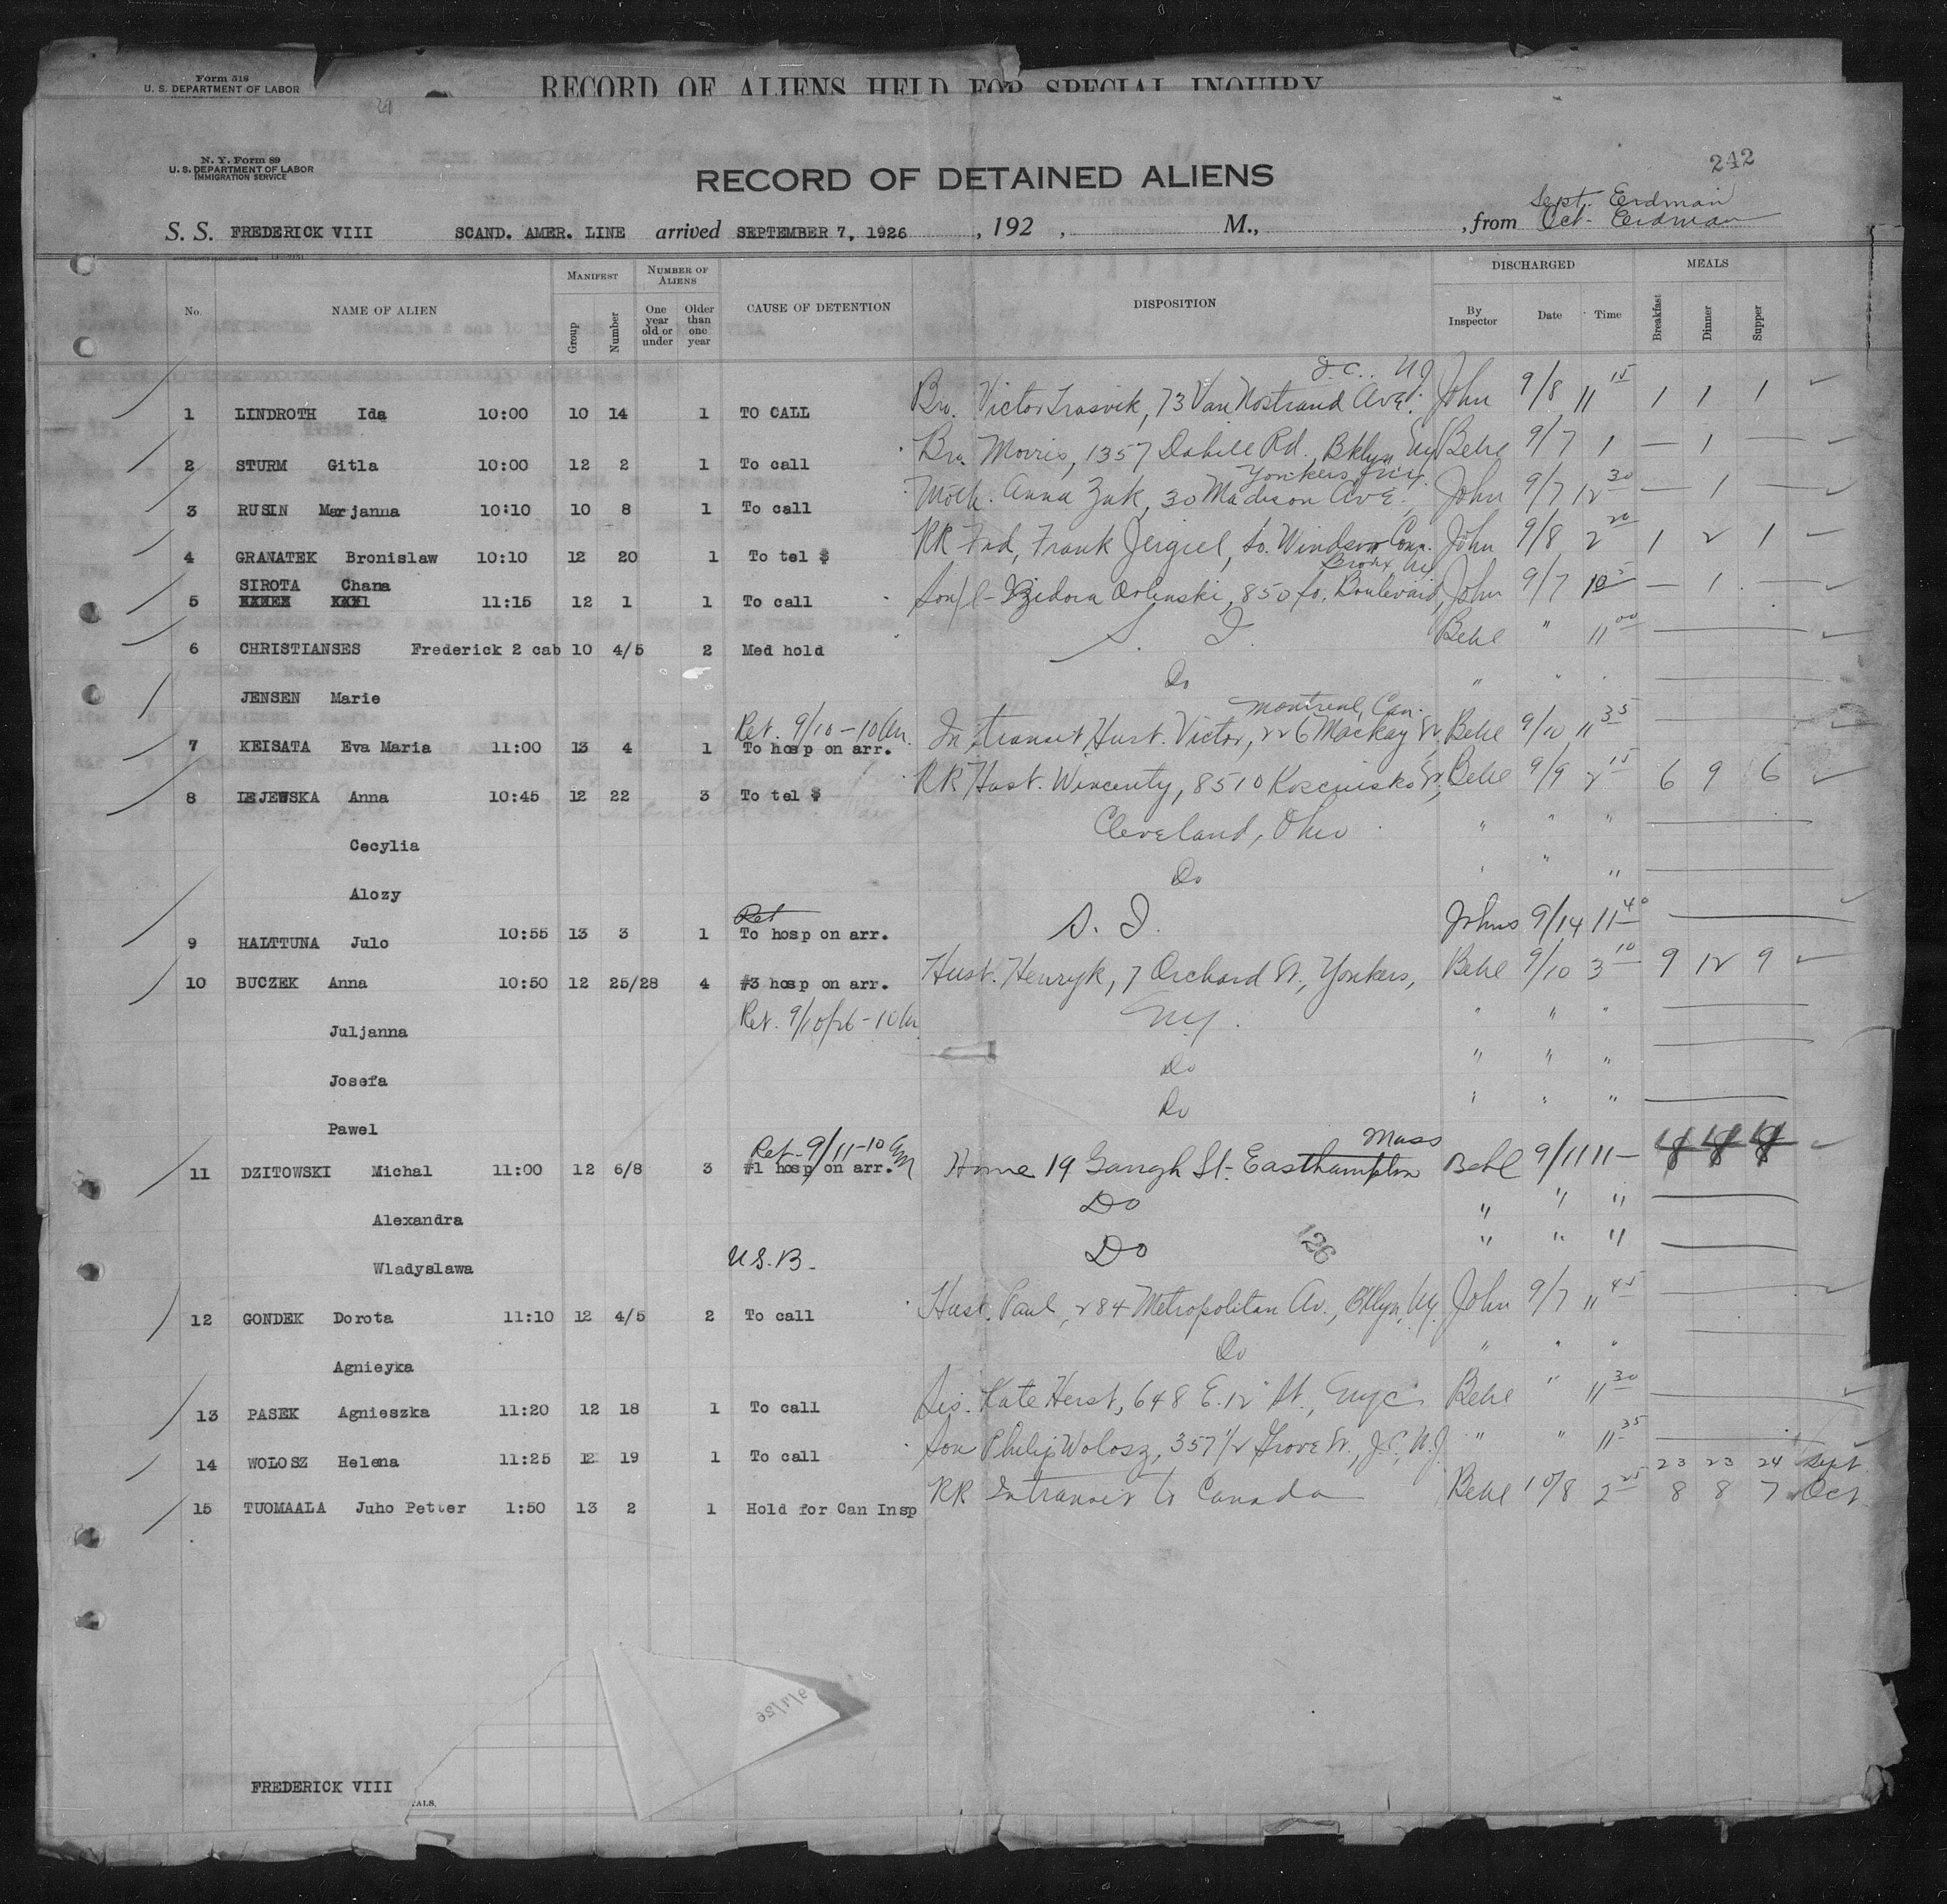 Form 518
U. S. DEPARTMENT OF LABOR
RECORD OF ALIENS HELD FOR SPECIAL INQUIRY
N. Y. Form 89
U. S. DEPARTMENT OF LABOR
IMMIGRATION SERVICE
242
RECORD OF DETAINED ALIENS
Sept. Erdman
S. S. FREDERICK VIII SCAND. AMER. LINE arrived SEPTEMBER 7, 1926, 192 , M., , from Oct- Erdman
No. NAME OF ALIEN MANIFEST Group Number NUMBER OF ALIENS One year old or under Older than one year CAUSE OF DETENTION DISPOSITION DISCHARGED By Inspector Date Time MEALS Breakfast Dinner Supper
J.C. NJ
1 LINDROTH Ida 10:00 10 14 1 TO CALL Bro. Victor Trasvik, 73 Van Nostrand Ave. John 9/8 11 15 1 1 1
2 STURM Gitla 10:00 12 2 1 To call Bro. Morris, 1357 Dahill Rd., Bklyn NY Behl 9/7 1 — 1 —
Yonkers, N.Y.
3 RUSIN Marjanna 10:10 10 8 1 To call Moth. Anna Zuk, 30 Madison Ave. John 9/7 12 30 — 1 —
4 GRANATEK Bronislaw 10:10 12 20 1 To tel $ RR Frd, Frank Jergiel, So. Windsor Conn. John 9/8 2 20 1 2 1
SIROTA Chana Bronx, NY
5 11:15 12 1 1 To call Son/l- Izidora Orlinski, 850 So. Boulevard, John 9/7 10 — 1 —
6 CHRISTIANSES Frederick 2 cab 10 4/5 2 Med hold S. I. Behl " 11 00
JENSEN Marie Do " " "
Ret. 9/10 - 10 Am. Montreal, Can.
7 KEISATA Eva Maria 11:00 13 4 1 To hosp on arr. In transit Husb. Victor, 226 Mackay St, Behl 9/10 11 35
8 LEJEWSKA Anna 10:45 12 22 3 To tel $ RR Husb. Wincenty, 8510 Kosciusko St, Behl 9/9 2 15 6 9 6
Cecylia Cleveland, Ohio " " "
Alozy Do " " "
Ret
9 HALTTUNA Julo 10:55 13 3 1 To hosp on arr. S. I. Johns 9/14 11 40
10 BUCZEK Anna 10:50 12 25/28 4 #3 hosp on arr. Husb. Henryk, 7 Orchard St., Yonkers, Behl 9/10 3 10 9 12 9
Juljanna Ret. 9/10/26 - 10 Am NY. " " "
Josefa Do " " "
Pawel Do " " "
Ret- 9/11-10 Am Mass
11 DZITOWSKI Michal 11:00 12 6/8 3 #1 hosp on arr. Home 19 Gaugh St- Easthampton Behl 9/11 11—
Alexandra Do " " "
Wladyslawa U.S.B. Do 126 " " "
12 GONDEK Dorota 11:10 12 4/5 2 To call Husb. Paul, 284 Metropolitan Av., Bklyn, NY. John 9/7 11 45
Agnieyka Do " " "
13 PASEK Agnieszka 11:20 12 18 1 To call Sis. Kate Herst, 648 E. 12" St., NYC Behl " 11 30
14 WOLOSZ Helena 11:25 12 19 1 To call Son Philip Wolosz, 357 1/2 Grove St., J.C., N.J. " " 11 35
23 23 24 Sept
15 TUOMAALA Juho Petter 1:50 13 2 1 Hold for Can Insp RR Intransit to Canada Behl 10/8 2 25 8 8 7 Oct
9/7/26
FREDERICK VIII
TALS.